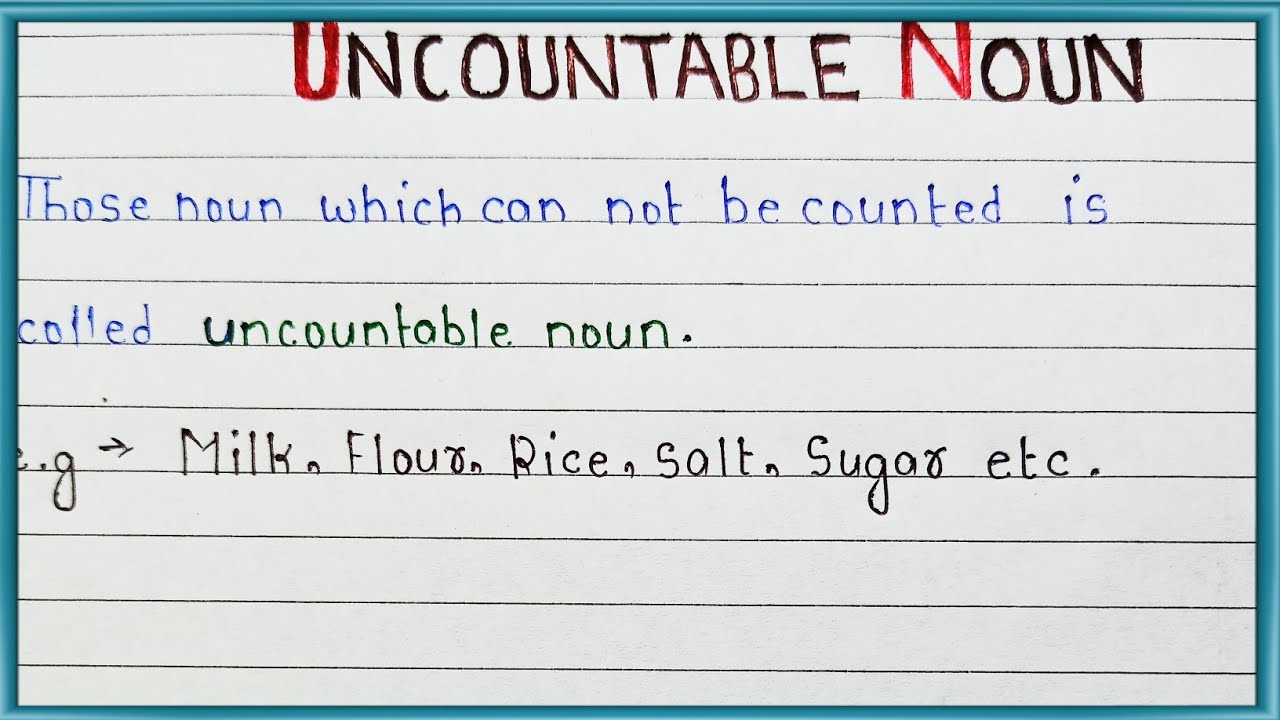 UNCOUNTABLE NOUN
Those noun which can not be counted is
called uncountable noun.
e.g → Milk, Flour, Rice, Salt, Sugar etc.